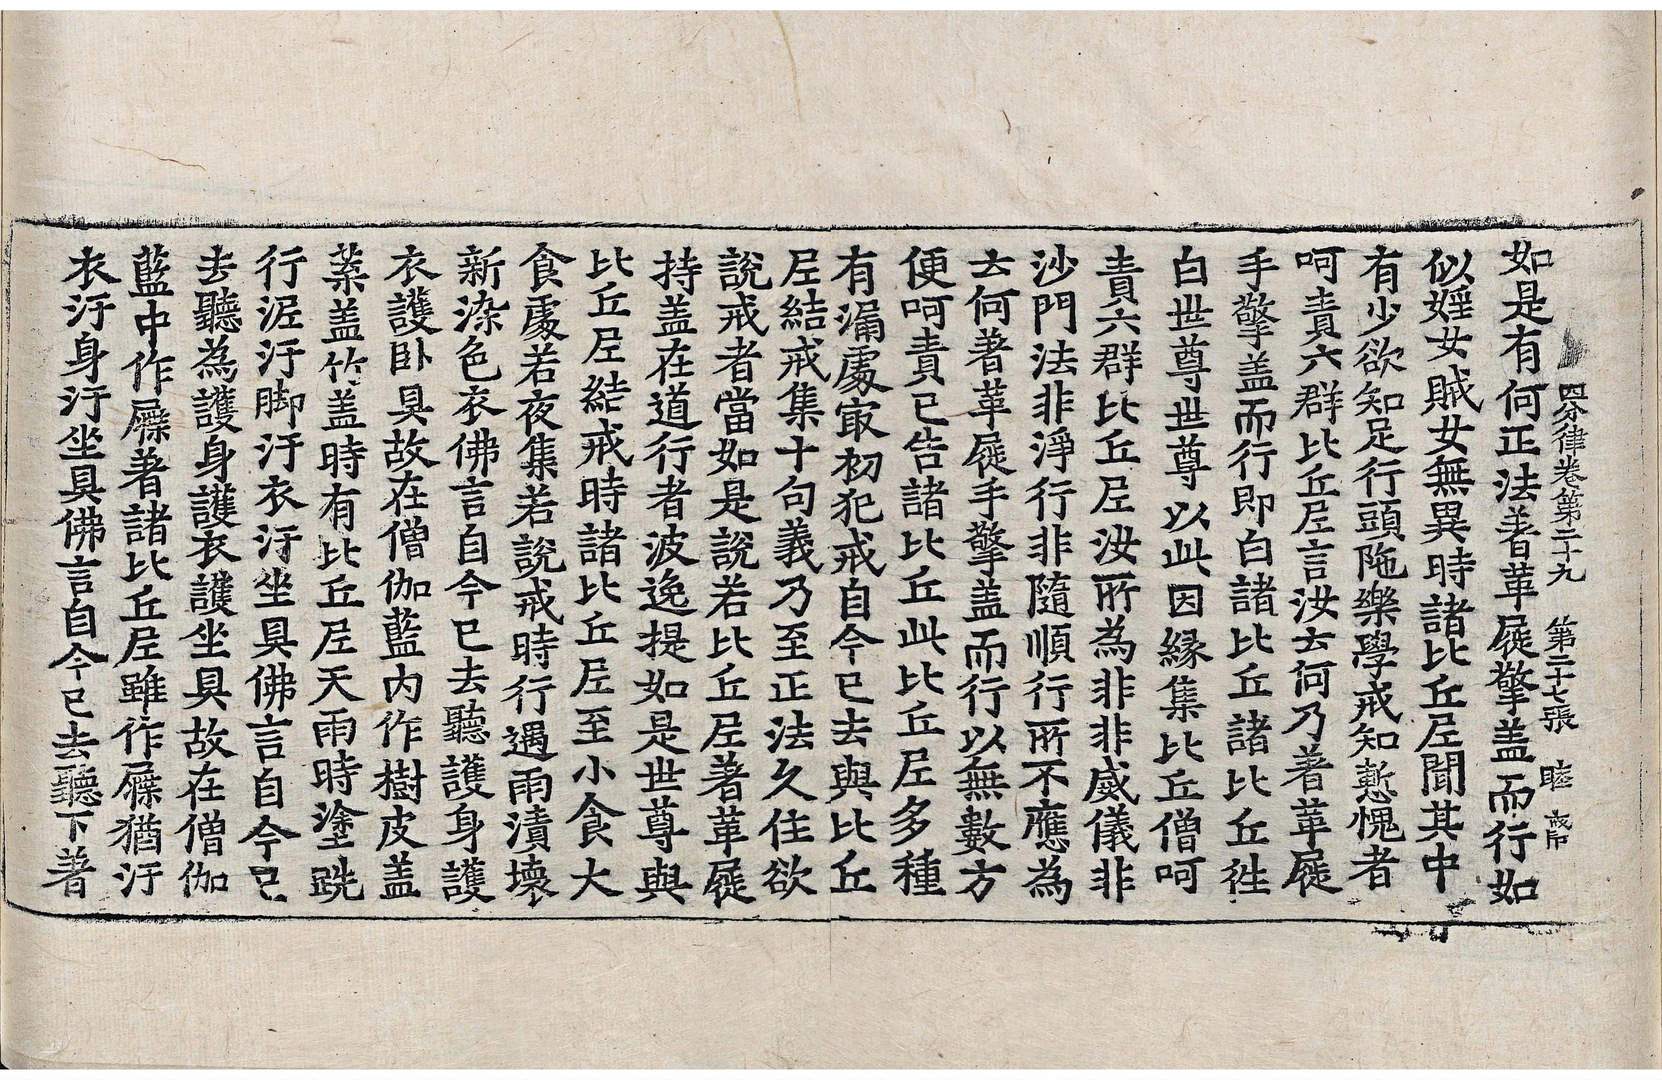 四分律卷第二十九 第二十七張 睦
如是有何正法著革屣擎盖而行如
似婬女賊女無異時諸比丘尼聞其中
有少欲知足行頭陁樂學戒知慙愧者
呵責六群比丘尼言汝云何乃著革屣
手擎盖而行即白諸比丘諸比丘徃
白世尊世尊以此因緣集比丘僧呵
責六群比丘尼汝所為非非威儀非
沙門法非淨行非隨順行所不應為
云何著革屣手擎盖而行以無數方
便呵責已告諸比丘此比丘尼多種
有漏處㝡初犯戒自今已去與比丘
尼結戒集十句義乃至正法久住欲
說戒者當如是說若比丘尼著革屣
持盖在道行者波逸提如是世尊與
比丘尼結戒時諸比丘尼至小食大
食處若夜集若說戒時行遇雨漬壞
新染色衣佛言自今已去聽護身護
衣護卧具故在僧伽藍內作樹皮盖
葉盖竹盖時有比丘尼天雨時塗跣
行泥汙脚汙衣汙坐具佛言自今已
去聽為護身護衣護坐具故在僧伽
藍中作屧著諸比丘尼雖作屧猶汙
衣汙身汙坐具佛言自今已去聽下著